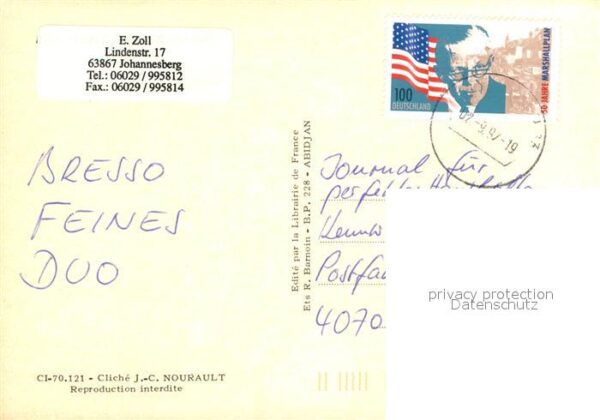 E. Zoll
Lindenstr. 17
63867 Johannesberg
Tel.: 06029 / 995812
Fax.: 06029 / 995814
100
DEUTSCHLAND
50 JAHRE MARSHALLPLAN
-9.97-19
BRESSO
FEINES
DUO
Edité par la Librairie de France
Ets R. Barnoin - B.P. 228 - ABIDJAN
Journal für
Postfac
4070
privacy protection
Datenschutz
CI-70.121 - Cliché J.-C. NOURAULT
Reproduction interdite